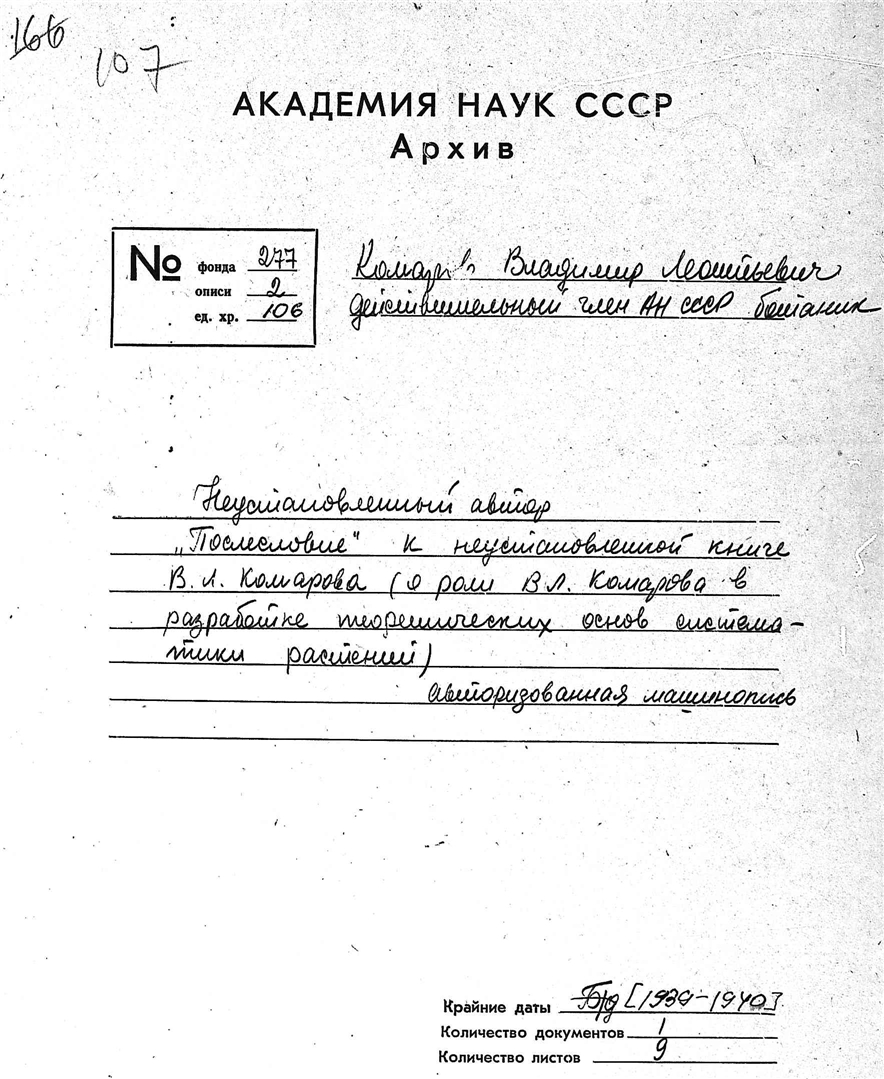 166
107
АКАДЕМИЯ НАУК СССР
Архив
№ фонда 277
описи 2
ед. хр. 106
Комаров Владимир Леонтьевич
действительный член АН СССР ботаник
Неустановленный автор
„Послесловие" к неустановленной книге
В.Л. Комарова (о роли В.Л. Комарова в
разработке теоретических основ система-
тики растений)
авторизованная машинопись
Крайние даты Б/д [1939-1940]
Количество документов 1
Количество листов 9